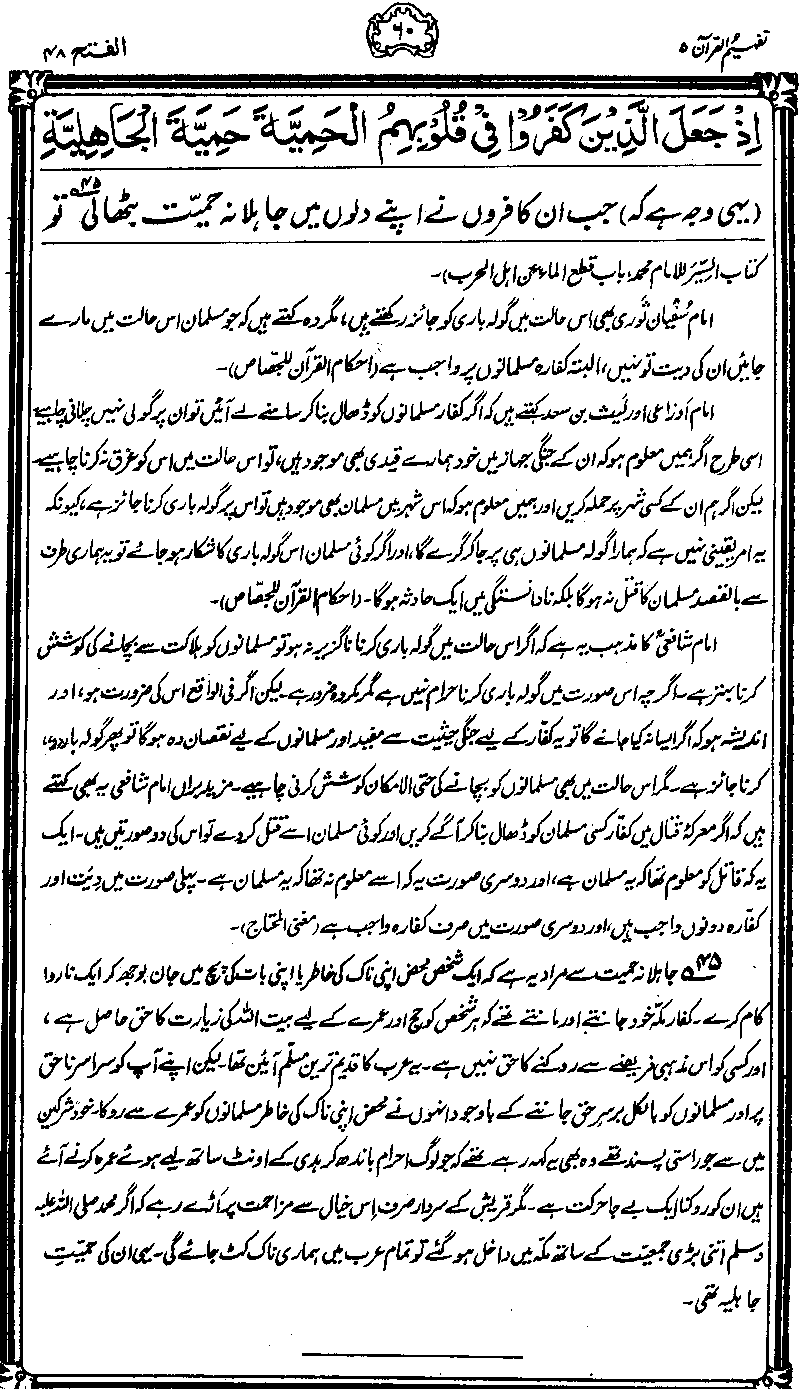 تفہیم القرآن ۵
۶۰
الفتح ۴۸
اِذْ جَعَلَ الَّذِيْنَ كَفَرُوْا فِيْ قُلُوْبِهِمُ الْحَمِيَّةَ حَمِيَّةَ الْجَاهِلِيَّةِ
(یہی وجہ ہے کہ) جب ان کافروں نے اپنے دلوں میں جاہلانہ حمیّت بٹھالی ۴۵ تو
کتاب السِّیَر للامام محمد، باب قطع الماء عن اہل الحرب)۔
امام سُفیان ثوری بھی اس حالت میں گولہ باری کو جائز رکھتے ہیں، مگر وہ کہتے ہیں کہ جو مسلمان اس حالت میں مارے
جائیں ان کی دیت تو نہیں، البتہ کفارہ مسلمانوں پر واجب ہے (احکام القرآن للجصّاص)۔
امام اَوزاعی اور لَیث بن سعد کہتے ہیں کہ اگر کفار مسلمانوں کو ڈھال بنا کر سامنے لے آئیں تو ان پر گولی نہیں چلانی چاہیے
اسی طرح اگر ہمیں معلوم ہو کہ ان کے جنگی جہاز میں خود ہمارے قیدی بھی موجود ہیں، تو اس حالت میں اس کو غرق نہ کرنا چاہیے۔
لیکن اگر ہم ان کے کسی شہر پر حملہ کریں اور ہمیں معلوم ہو کہ اس شہر میں مسلمان بھی موجود ہیں تو اس پر گولہ باری کرنا جائز ہے، کیونکہ
یہ امر یقینی نہیں ہے کہ ہمارا گولہ مسلمانوں ہی پر جا کر گرے گا، اور اگر کوئی مسلمان اس گولہ باری کا شکار ہو جائے تو یہ ہماری طرف
سے بالقصد مسلمان کا قتل نہ ہوگا بلکہ نادانستگی میں ایک حادثہ ہوگا۔ (احکام القرآن للجصّاص)۔
امام شافعیؒ کا مذہب یہ ہے کہ اگر اس حالت میں گولہ باری کرنا ناگزیر نہ ہو تو مسلمانوں کو ہلاکت سے بچانے کی کوشش
کرنا بہتر ہے۔ اگرچہ اس صورت میں گولہ باری کرنا حرام نہیں ہے مگر مکروہ ضرور ہے۔ لیکن اگر فی الواقع اس کی ضرورت ہو، اور
اندیشہ ہو کہ اگر ایسا نہ کیا جائے گا تو یہ کفار کے لیے جنگی حیثیت سے مفید اور مسلمانوں کے لیے نقصان دہ ہوگا تو پھر گولہ باری
کرنا جائز ہے۔ مگر اس حالت میں بھی مسلمانوں کو بچانے کی حتی الامکان کوشش کرنی چاہیے۔ مزید براں امام شافعی یہ بھی کہتے
ہیں کہ اگر معرکۂ قتال میں کفار کسی مسلمان کو ڈھال بنا کر آگے کریں اور کوئی مسلمان اسے قتل کر دے تو اس کی دو صورتیں ہیں۔ ایک
یہ کہ قاتل کو معلوم تھا کہ یہ مسلمان ہے، اور دوسری صورت یہ کہ اسے معلوم نہ تھا کہ یہ مسلمان ہے۔ پہلی صورت میں دیّت اور
کفّارہ دونوں واجب ہیں، اور دوسری صورت میں صرف کفارہ واجب ہے (مغنی المحتاج)۔
۴۵ جاہلانہ حمیت سے مراد یہ ہے کہ ایک شخص محض اپنی ناک کی خاطر یا اپنی بات کی پچ میں جان بوجھ کر ایک ناروا
کام کرے۔ کفار مکہ خود جانتے اور مانتے تھے کہ ہر شخص کو حج اور عمرے کے لیے بیت اللہ کی زیارت کا حق حاصل ہے،
اور کسی کو اس مذہبی فریضے سے روکنے کا حق نہیں ہے۔ یہ عرب کا قدیم ترین مسلّم آئین تھا۔ لیکن اپنے آپ کو سراسر ناحق
پر اور مسلمانوں کو بالکل برسرِ حق جاننے کے باوجود انہوں نے محض اپنی ناک کی خاطر مسلمانوں کو عمرے سے روکا۔ خود مشرکین
میں سے جو راستی پسند تھے وہ بھی یہ کہہ رہے تھے کہ جو لوگ احرام باندھ کر ہدی کے اونٹ ساتھ لیے ہوئے عمرہ کرنے آئے
ہیں ان کو روکنا ایک بے جا حرکت ہے۔ مگر قریش کے سردار صرف اِس خیال سے مزاحمت پر اَڑے رہے کہ اگر محمد صلی اللہ علیہ
وسلم اتنی بڑی جمعیّت کے ساتھ مکہ میں داخل ہو گئے تو تمام عرب میں ہماری ناک کٹ جائے گی۔ یہی ان کی حمیّتِ
جاہلیہ تھی۔